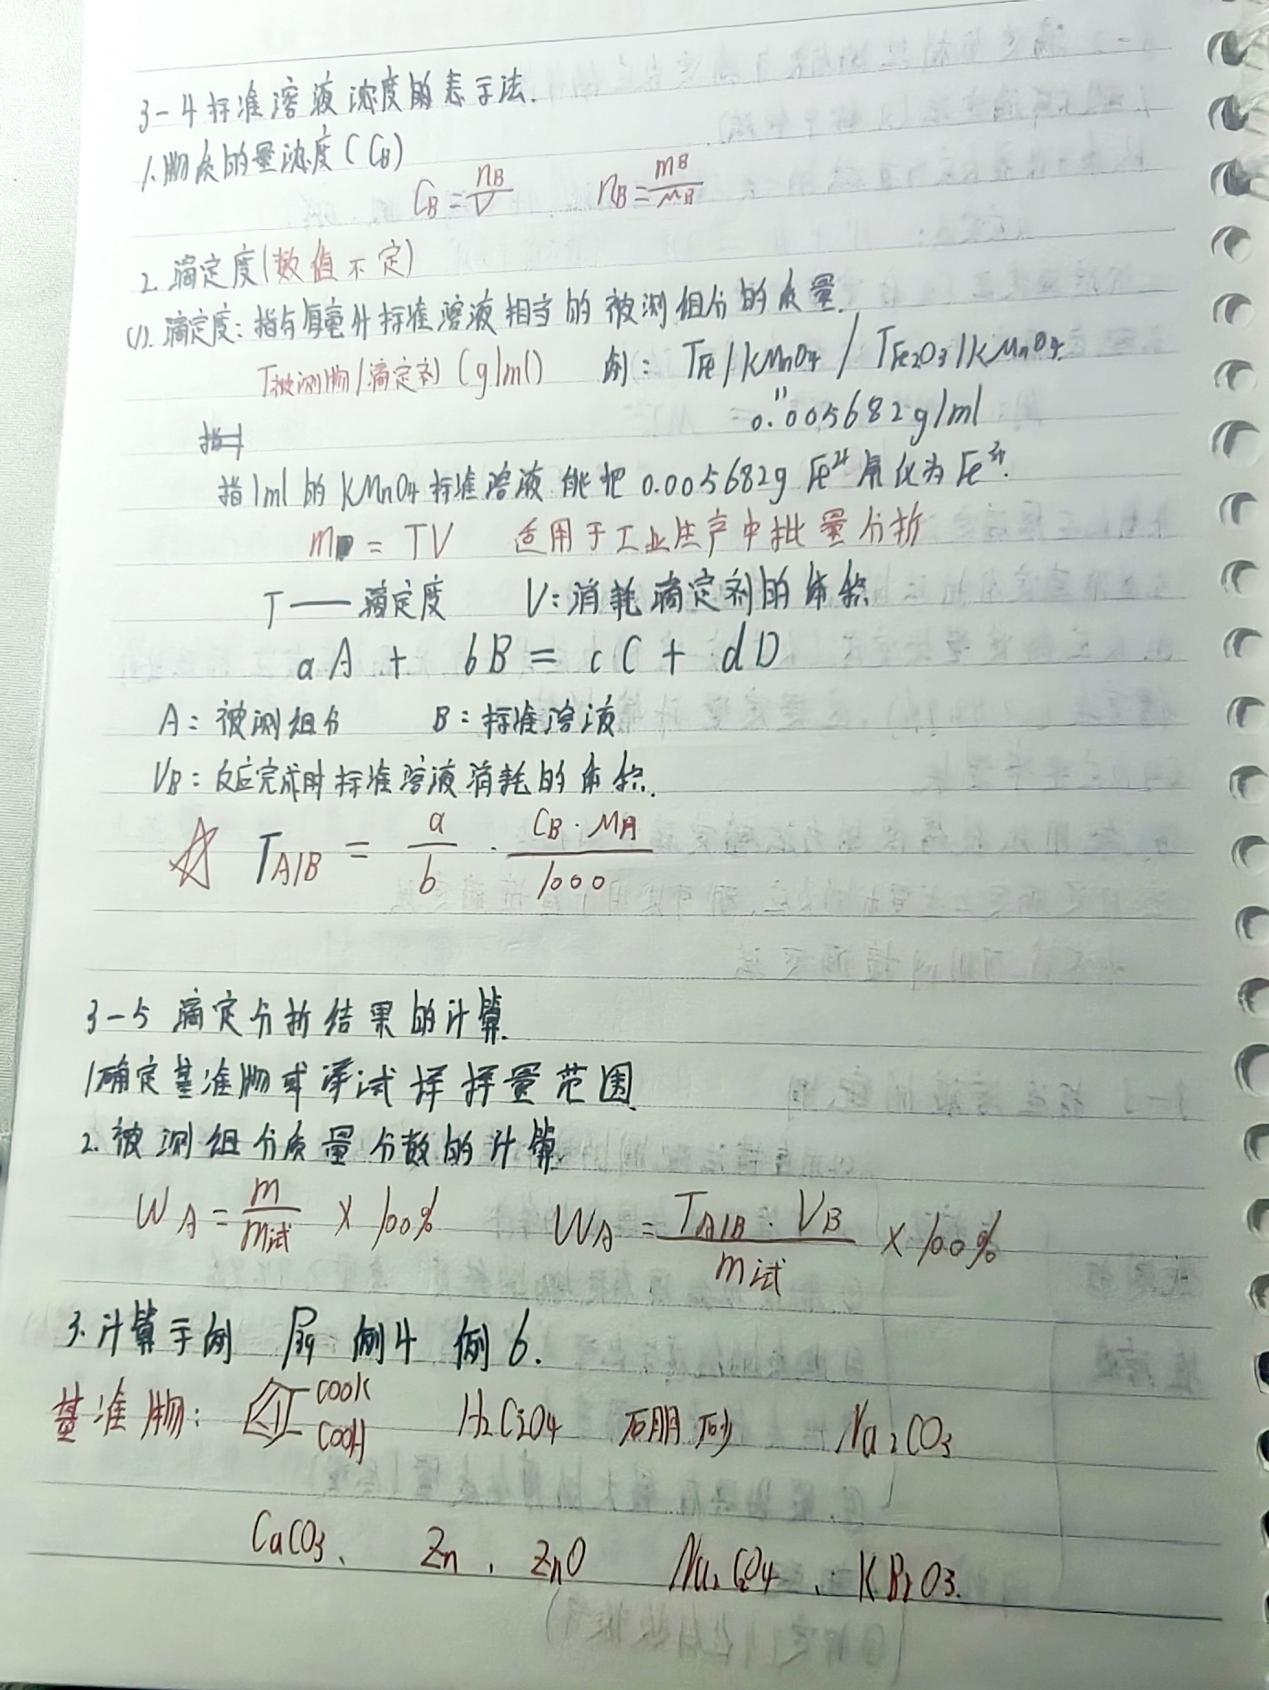 3-4 标准溶液浓度的表示法.
1.物质的量浓度(CB)
CB=nB/V nB=mB/MB
2.滴定度(数值不定)
(1).滴定度:指与每毫升标准溶液相当的被测组分的质量.
T被测物/滴定剂(g/ml) 例: TFe/KMnO4 / TFe2O3/KMnO4.
"
0.005682g/ml
指1ml的KMnO4标准溶液能把0.005682g Fe²⁺氧化为Fe³⁺.
m = TV 适用于工业生产中批量分析
T——滴定度 V:消耗滴定剂的体积
aA + bB = cC + dD
A:被测组分 B:标准溶液
VB:反应完成时标准溶液消耗的体积.
☆ TA/B = a/b · CB·MA/1000
3-5 滴定分析结果的计算.
1.确定基准物或 试样 量范围
2.被测组分质量分数的计算.
WA = m/m试 × 100% WA = TA/B·VB/m试 × 100%
3.计算示例 P39 例4 例6.
基准物: COOK COOH H2C2O4 硼砂 Na2CO3
CaCO3、 Zn、ZnO Na2C2O4、KBrO3.